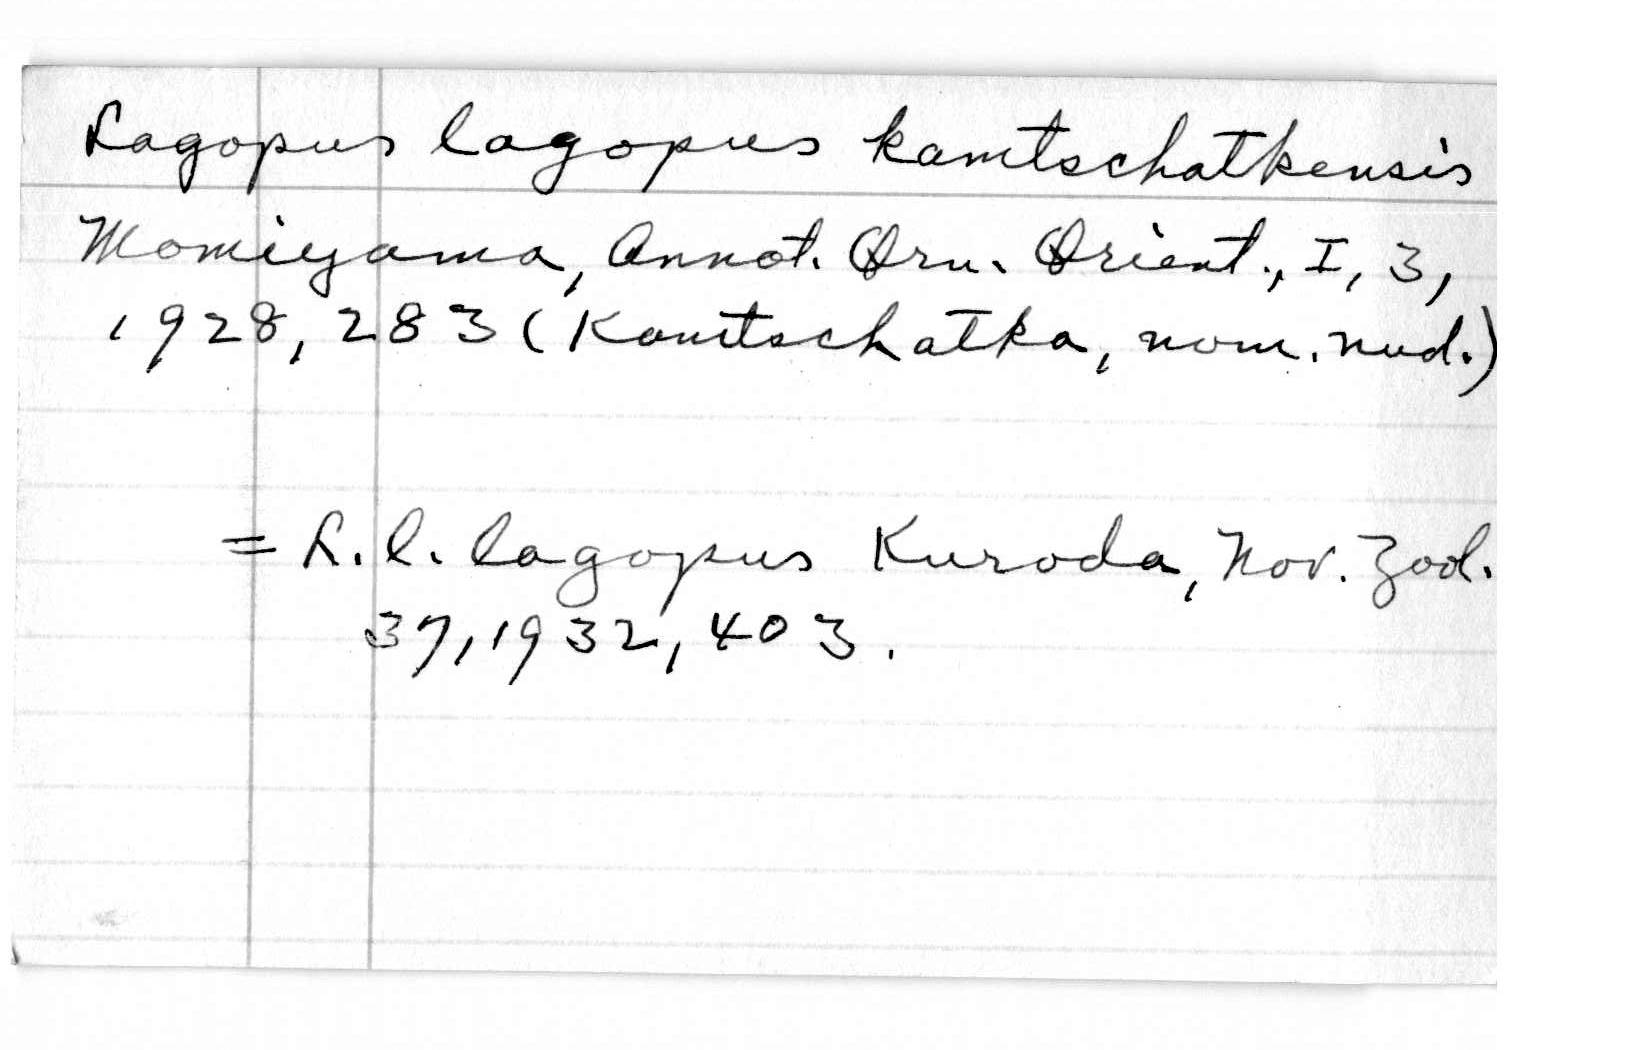 Lagopus lagopus kamtschatkensis
Momiyama, Annot. Orn. Orient., I, 3,
1928, 283 (Kamtschatka, nom. nud.)
= L. l. lagopus Kuroda, Nov. Zool.
37, 1932, 403.